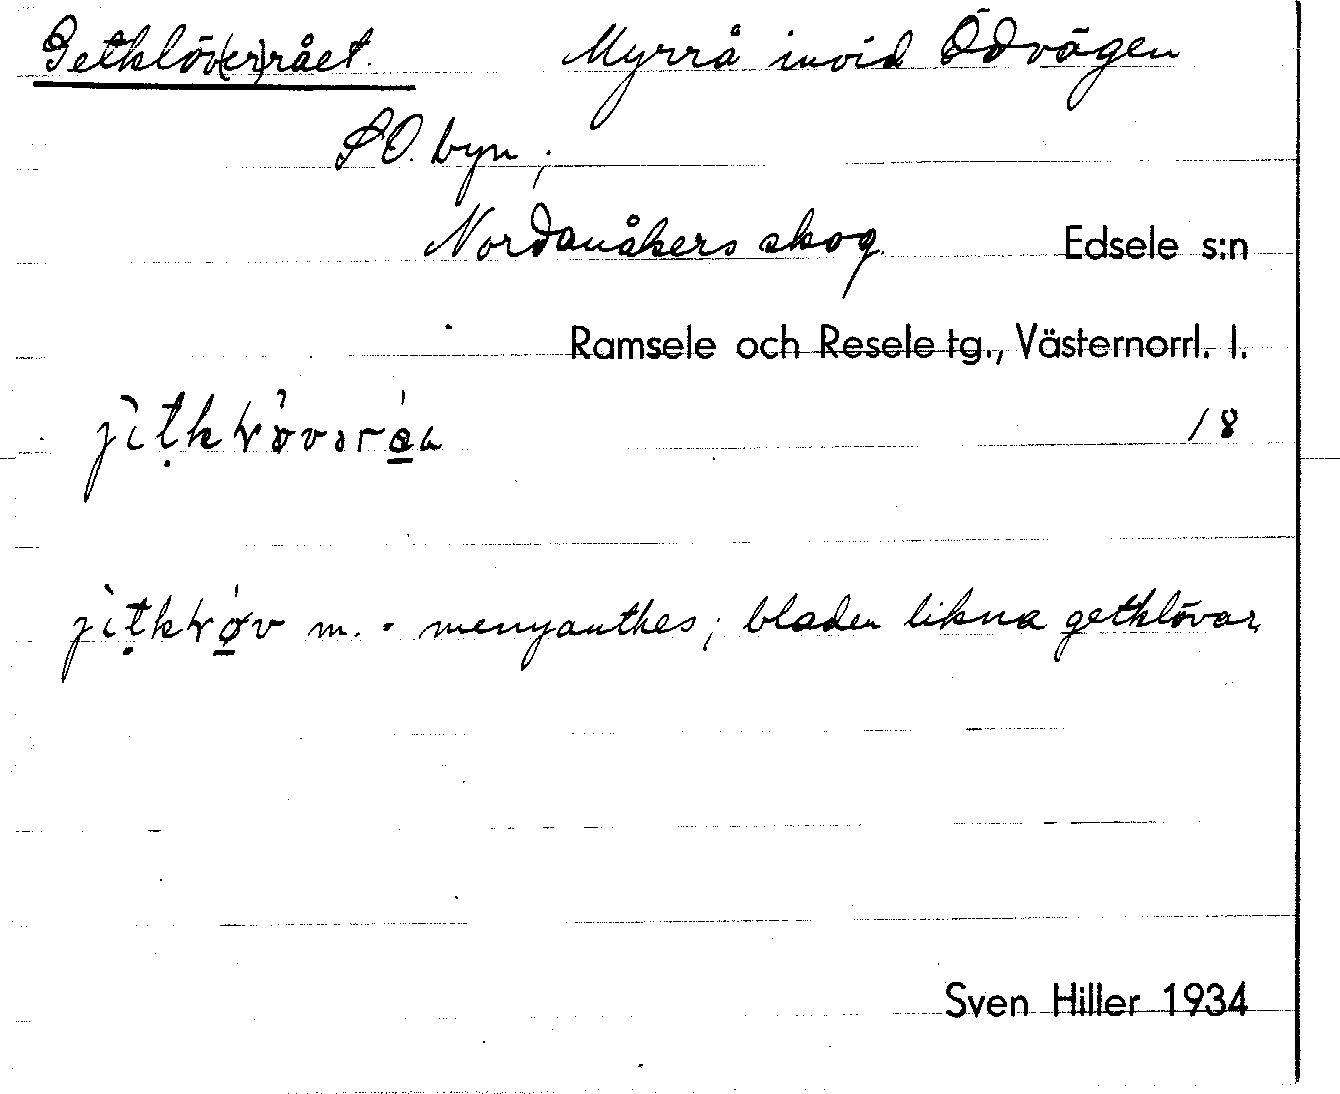 Getklöv(er)rået. Myrrå invid Ödvägen
SO. byn;
Nordanåkers skog. Edsele s:n
Ramsele och Resele tg., Västernorrl. l.
/ 8
m. = menyanthes; bladen likna getklövar,
Sven Hiller 1934